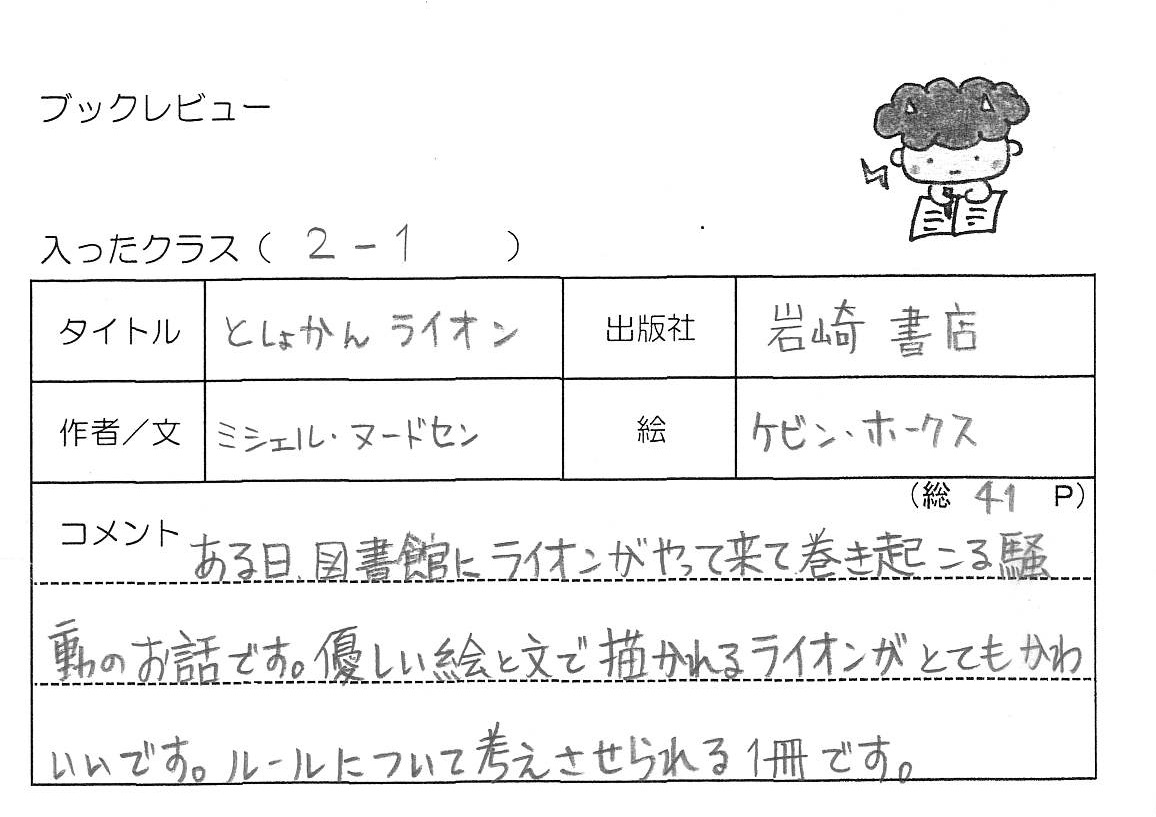 ブックレビュー
入ったクラス（ 2-1 ）
タイトル としょかん ライオン 出版社 岩崎 書店
作者／文 ミシェル・ヌードセン 絵 ケビン・ホークス
（総 41 P）
コメント ある日、図書館にライオンがやって来て巻き起こる騒
動のお話です。優しい絵と文で描かれるライオンがとてもかわ
いいです。ルールについて考えさせられる1冊です。